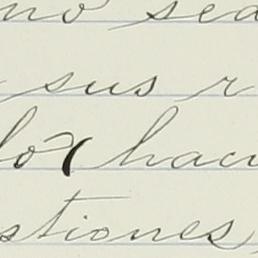 no sea
sus r
lo hacu
stiones,